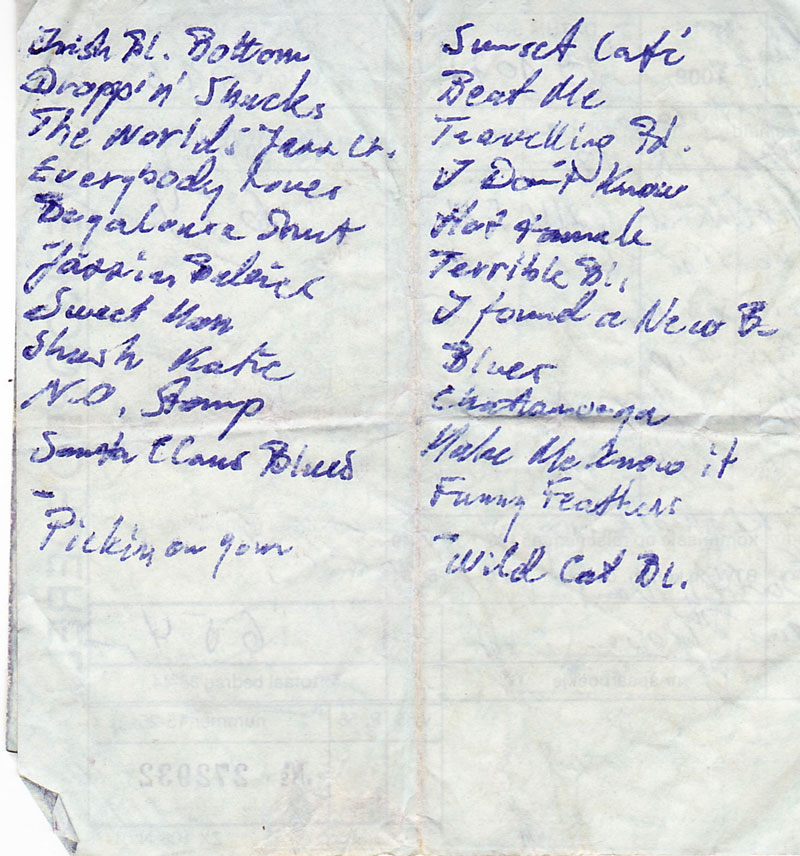 Irish Bl. Bottom
Droppin' Shucks
The World's Jazz Cr.
Everybody Loves
Bogalousa Strut
Jazzin Babies
Sweet Mam
Shush Katie
N.O. Stomp
Santa Claus Blues
Pickin on your
Sunset Café
Beat Me
Travelling Bl.
I Don't Know
Hot Tamale
Terrible Bl.
I found a New B
Blues
Chattanooga
Make Me Know it
Funny Feathers
Wild Cat Bl.
654
totaal bedrag
nummer
№ 272932